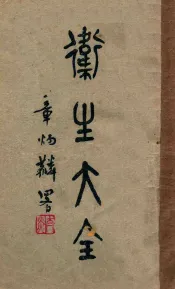 衞生大全
章炳麟署